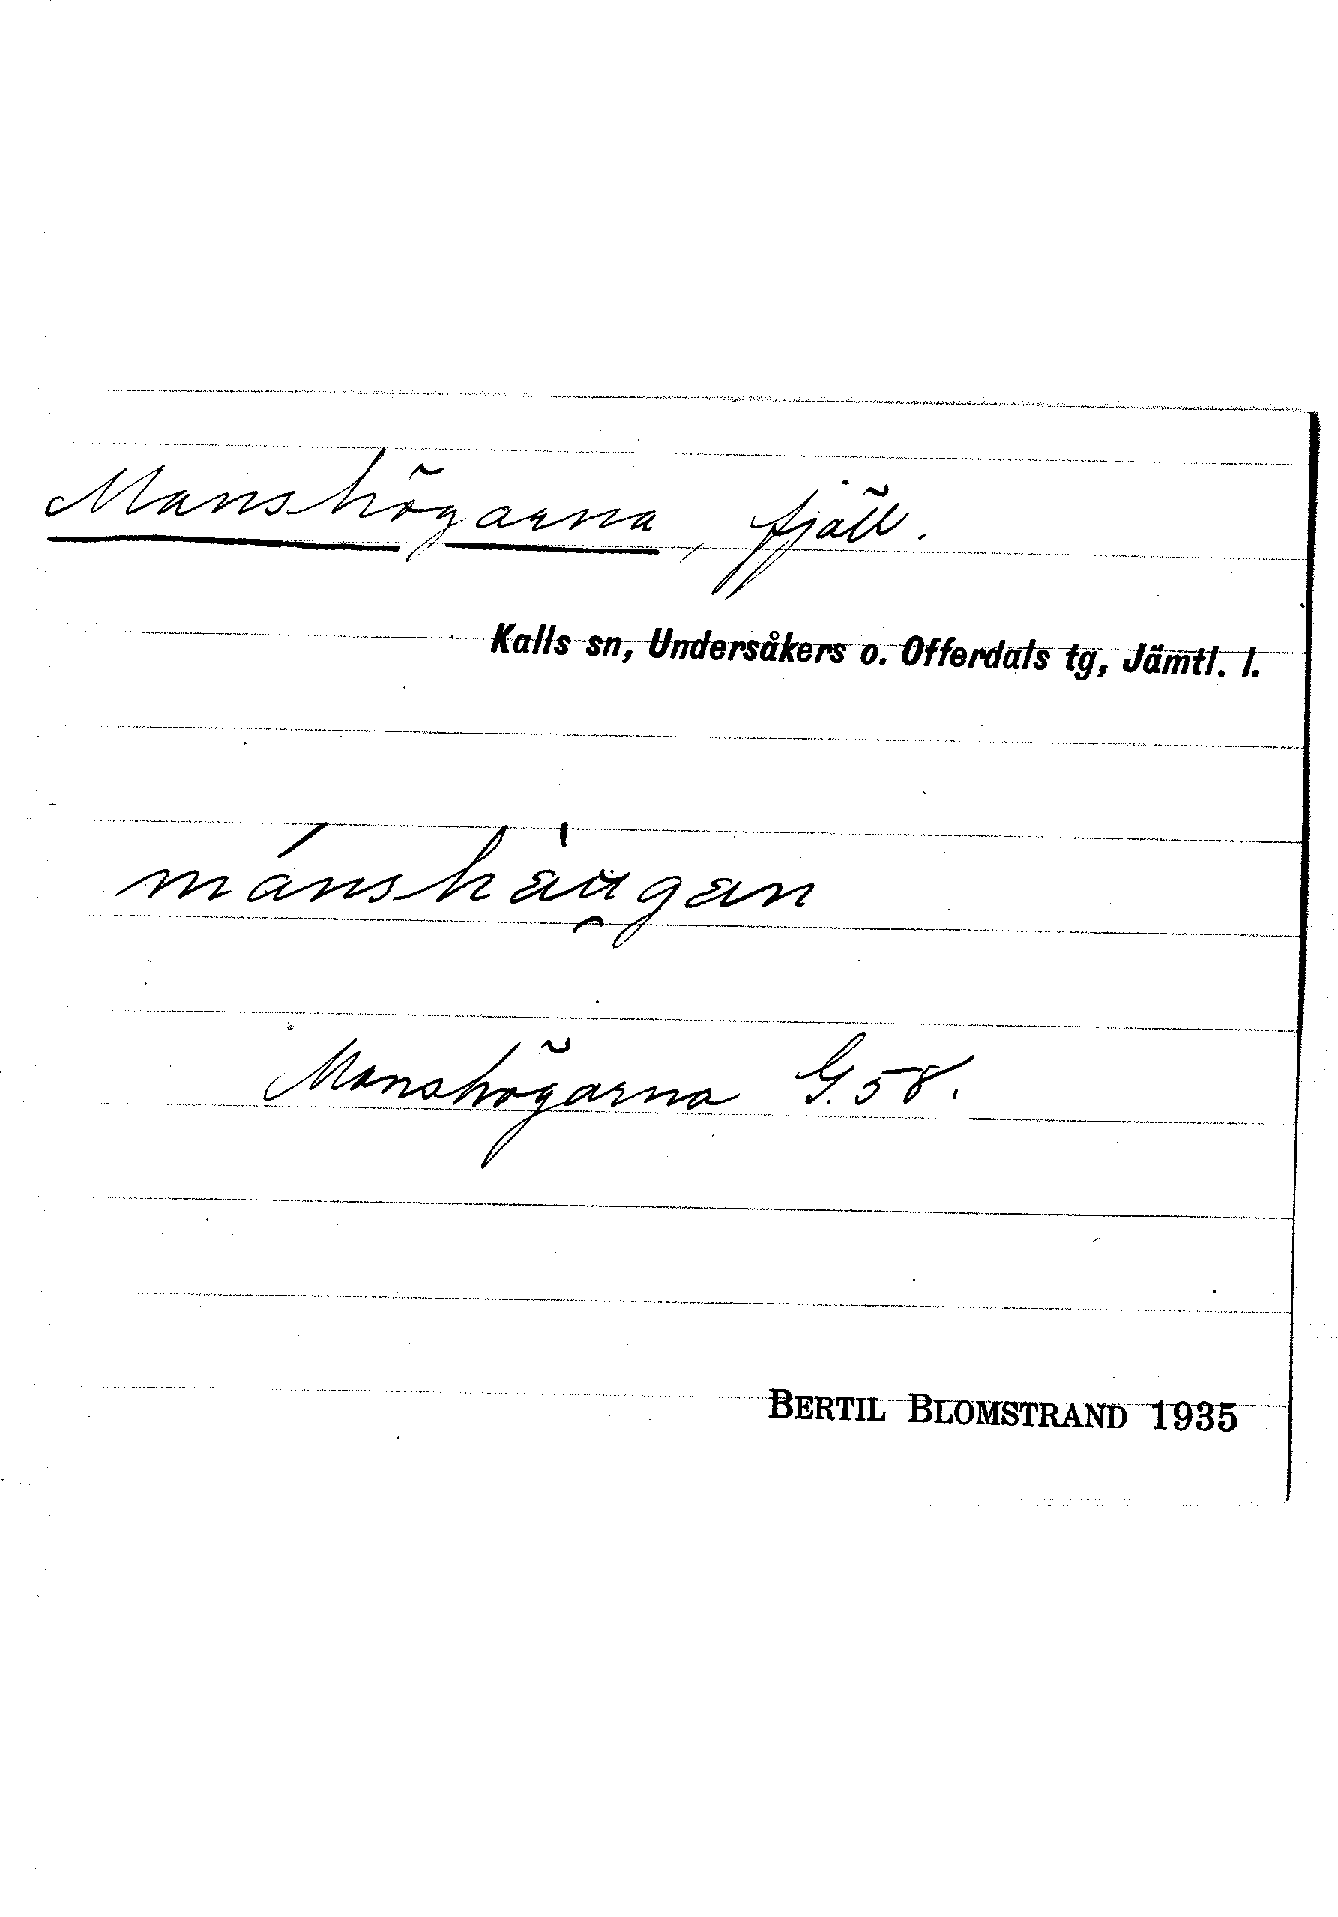 Manshögarna, fjäll.
Kalls sn, Undersåkers o. Offerdals tg, Jämtl. l.
mánshàu̯gan
Manshögarna G. 58.
BERTIL BLOMSTRAND 1935